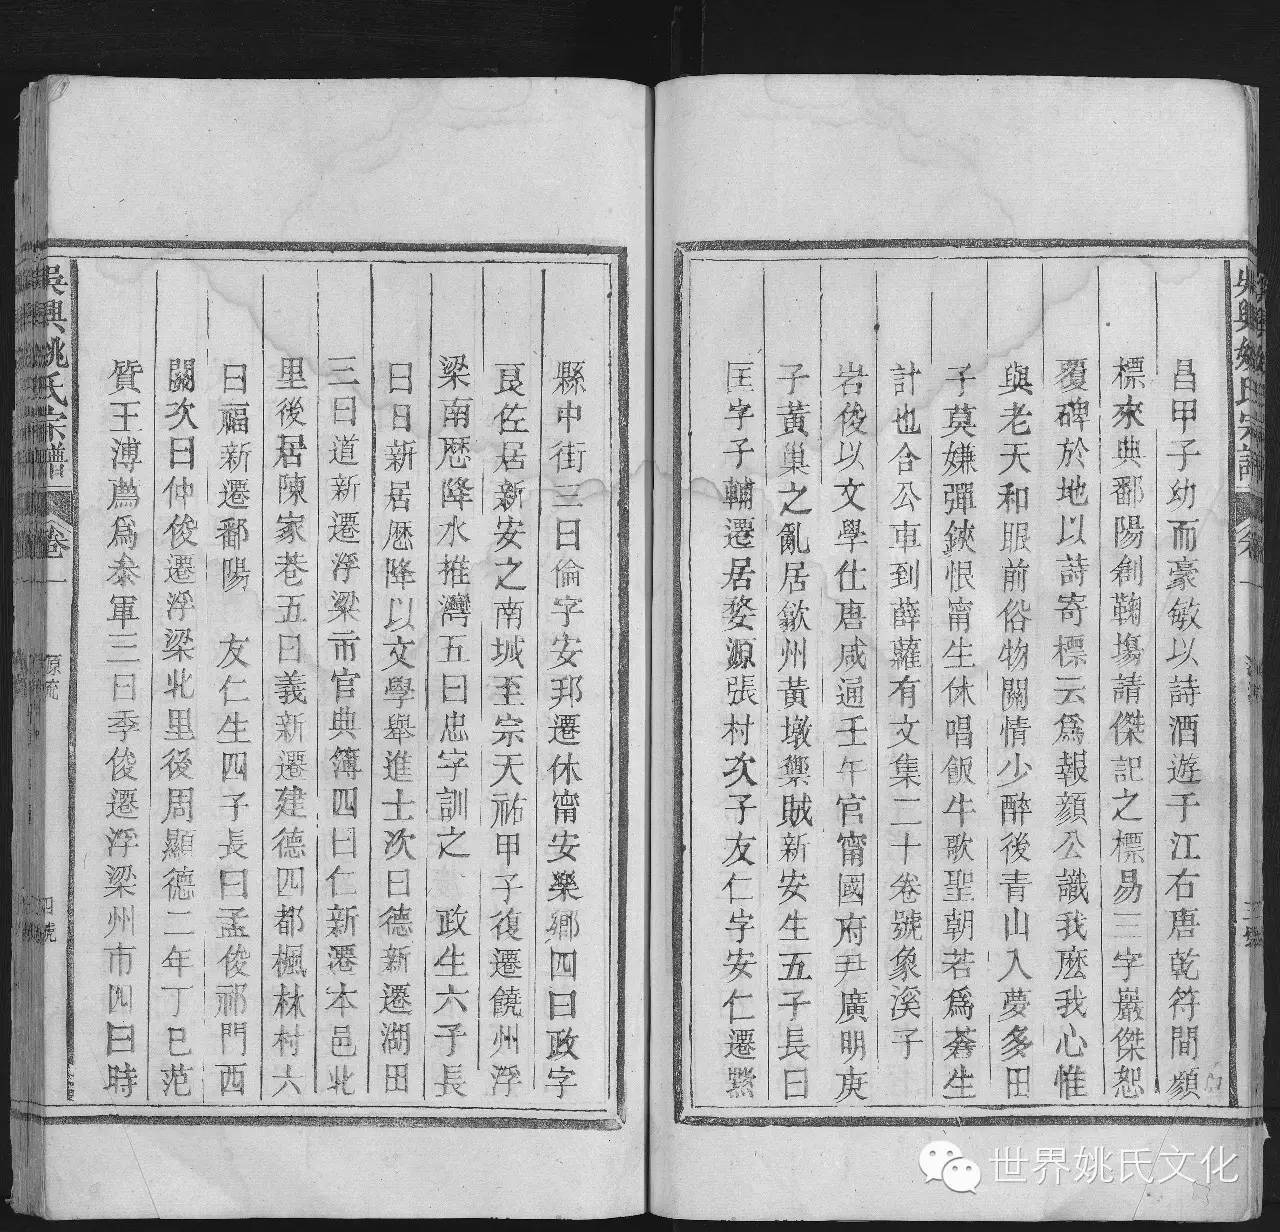 昌甲子幼而豪敏以詩酒遊于江右唐乾符間顏
標來典鄱陽創鞠塲請傑記之標易三字巖傑恕
覆碑於地以詩寄標云爲報顏公識我麽我心惟
與老天和眼前俗物關情少醉後青山入夢多田
子莫嫌彈鋏恨甯生休唱飯牛歌聖朝若爲蒼生
計也合公車到薜蘿有文集二十卷號象溪子
岩俊以文學仕唐咸通壬午官甯國府尹廣明庚
子黃巢之亂居歙州黃墩禦賊新安生五子長曰
匡字子輔遷居婺源張村次子友仁字安仁遷黟
縣中街三曰倫字安邦遷休甯安樂鄉四曰政字
艮佐居新安之南城至宗天祐甲子復遷饒州浮
梁南歷降水推灣五曰忠字訓之 政生六子長
曰日新居歷降以文學舉進士次曰德新遷湖田
三曰道新遷浮梁市官典簿四曰仁新遷本邑北
里後居陳家巷五曰義新遷建德四都楓林村六
曰福新遷鄱陽 友仁生四子長曰孟俊祁門西
關次曰仲俊遷浮梁北里後周顯德二年丁巳范
質王溥薦爲叅軍三曰季俊遷浮梁州市四曰時
吳興姚氏宗譜 卷一 源流 四號
世界姚氏文化